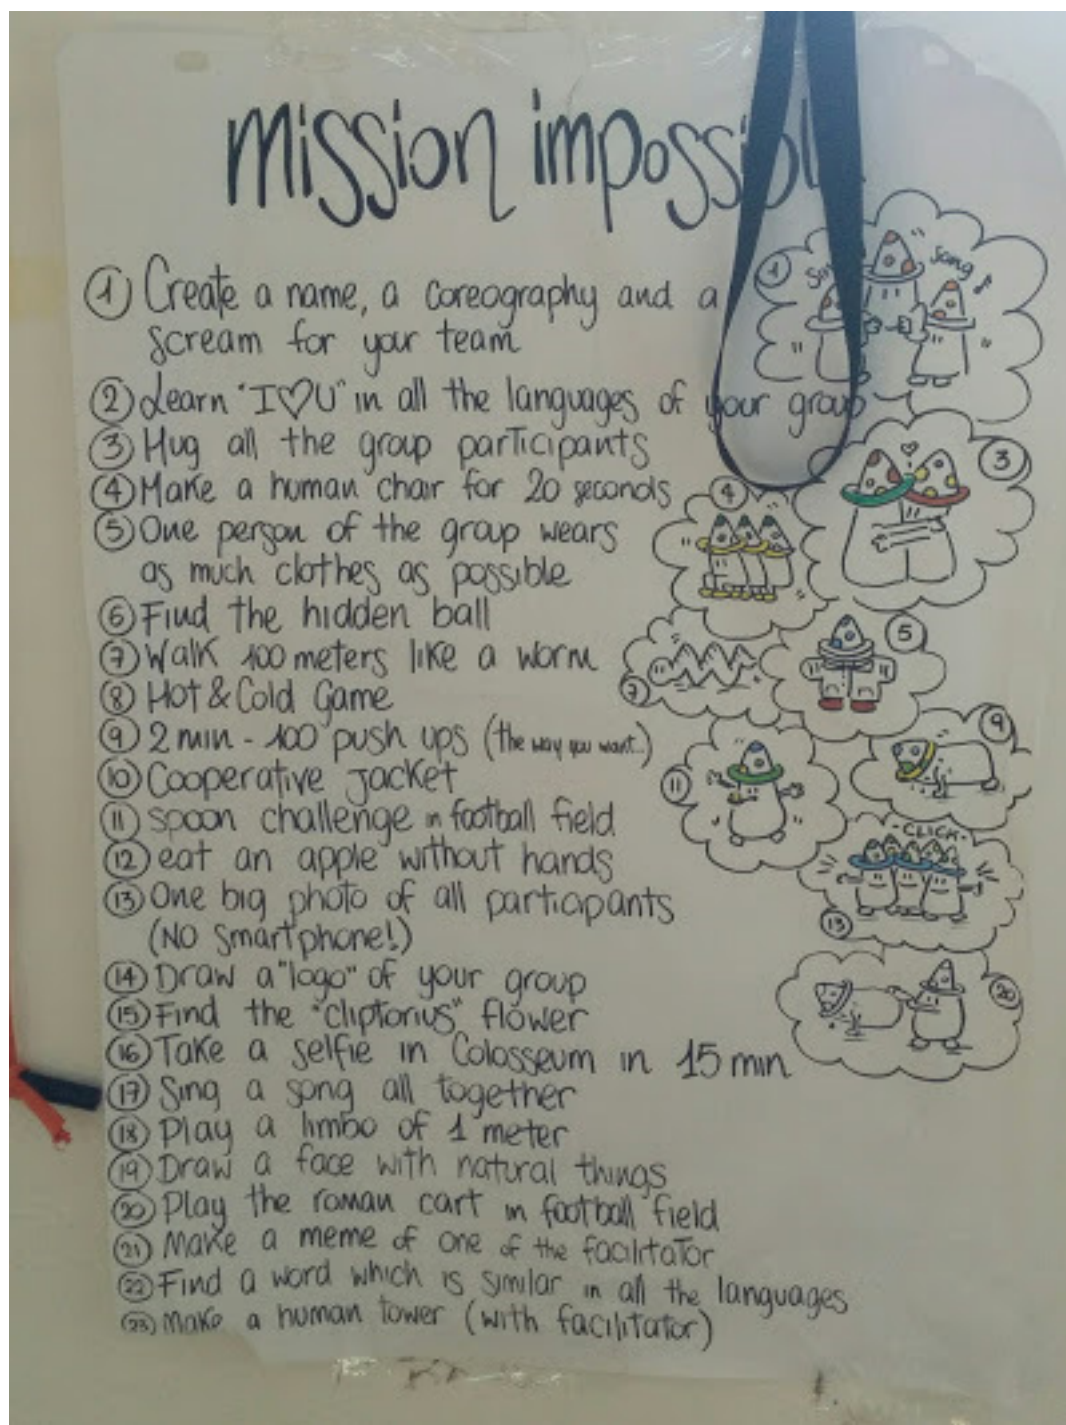 mission impossible
① Create a name, a coreography and a
scream for your team
② Learn "I♡U" in all the languages of your group
③ Hug all the group participants
④ Make a human chair for 20 seconds
⑤ One person of the group wears
as much clothes as possible
⑥ Find the hidden ball
⑦ Walk 100 meters like a worm
⑧ Hot & Cold Game
⑨ 2 min - 100 push ups (the way you want..)
⑩ Cooperative Jacket
⑪ spoon challenge in football field
⑫ eat an apple without hands
⑬ One big photo of all participants
(NO smartphone!)
⑭ Draw a "logo" of your group
⑮ Find the "cliptorius" flower
⑯ Take a selfie in Colosseum in 15 min
⑰ Sing a song all together
⑱ Play a limbo of 1 meter
⑲ Draw a face with natural things
⑳ Play the roman cart in football field
㉑ Make a meme of one of the facilitator
㉒ Find a word which is similar in all the languages
㉓ Make a human tower (with facilitator)
①
Song
③
④
⑤
⑦
⑨
⑪
-CLICK-
⑬
⑳